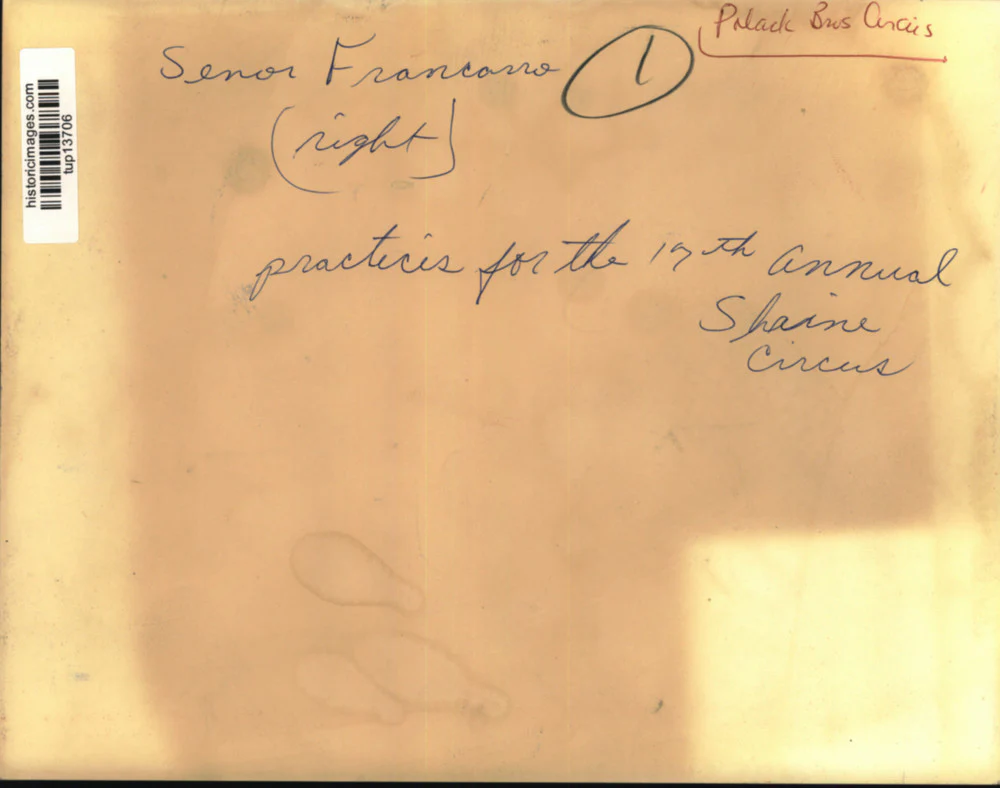 Polack Bros Circus
Senor Francarro
1
(right)
practices for the 19th annual
Shrine
Circus
historicimages.com
tup13706